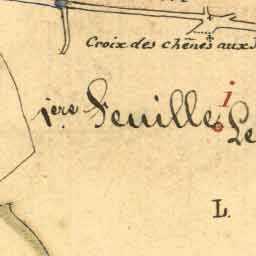 Croix des chênes aux
i
1ère Feuille Le
L.